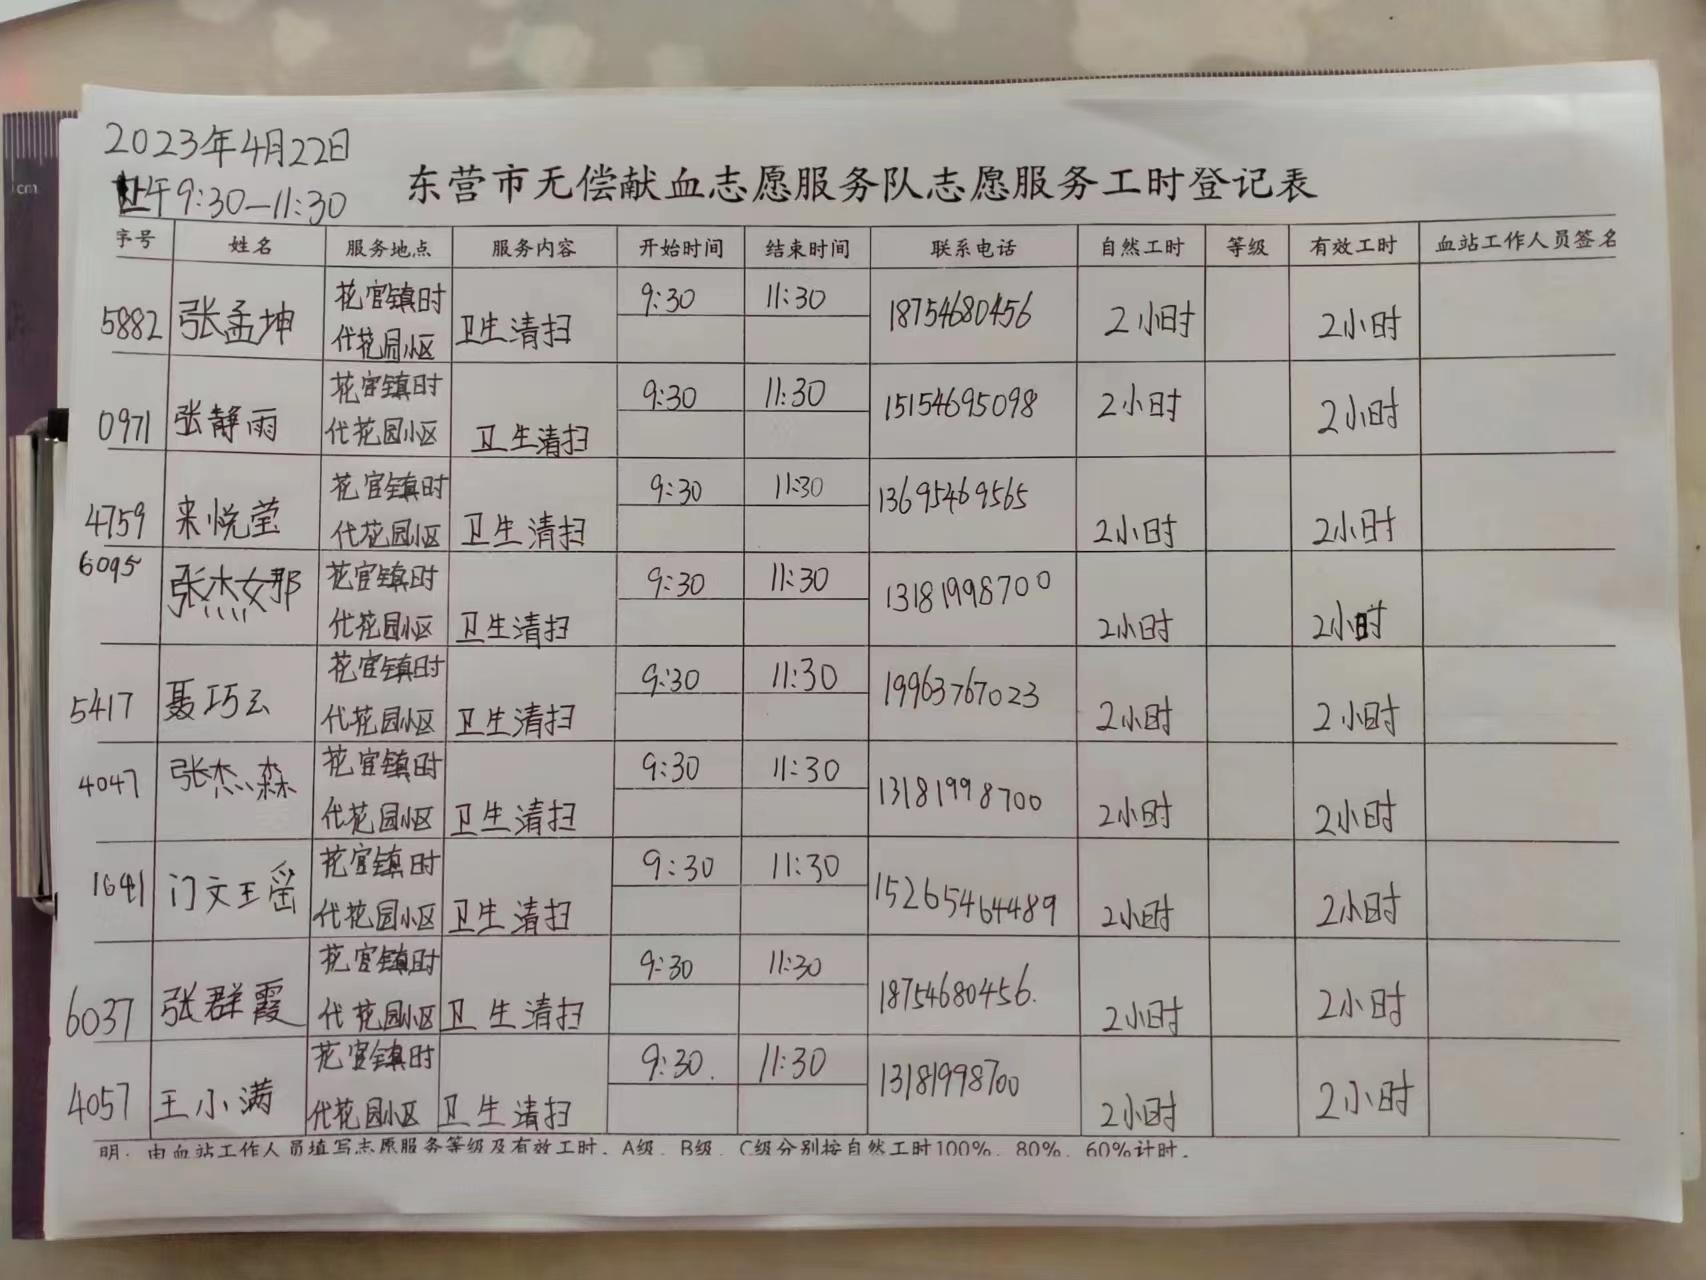 2023年4月22日
上午9:30-11:30
东营市无偿献血志愿服务队志愿服务工时登记表
序号 姓名 服务地点 服务内容 开始时间 结束时间 联系电话 自然工时 等级 有效工时 血站工作人员签名
5882 张孟坤 花官镇时代花园小区 卫生清扫 9:30 11:30 18754680456 2小时 2小时
0971 张静雨 花官镇时代花园小区 卫生清扫 9:30 11:30 15154695098 2小时 2小时
4759 来悦莹 花官镇时代花园小区 卫生清扫 9:30 11:30 13695469565 2小时 2小时
6095 张杰娜 花官镇时代花园小区 卫生清扫 9:30 11:30 13181998700 2小时 2小时
5417 聂巧云 花官镇时代花园小区 卫生清扫 9:30 11:30 19963767023 2小时 2小时
4047 张杰森 花官镇时代花园小区 卫生清扫 9:30 11:30 13181998700 2小时 2小时
1641 门文瑶 花官镇时代花园小区 卫生清扫 9:30 11:30 15265464489 2小时 2小时
6037 张群霞 花官镇时代花园小区 卫生清扫 9:30 11:30 18754680456. 2小时 2小时
4057 王小满 花官镇时代花园小区 卫生清扫 9:30. 11:30 13181998700 2小时 2小时
明：由血站工作人员填写志愿服务等级及有效工时。A级、B级、C级分别按自然工时100%、80%、60%计时。
cm